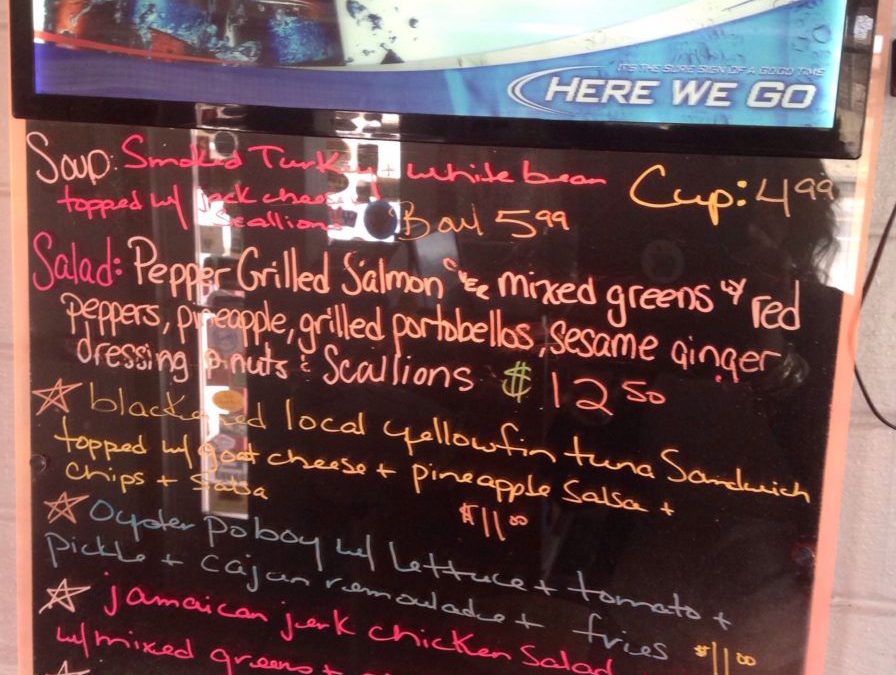 IT'S THE SURE SIGN OF A GOOD TIME
HERE WE GO
Soup: Smoked Turkey + white bean Cup: 4.99
topped w/ jack cheese
scallions Bowl 5.99
Salad: Pepper Grilled Salmon over mixed greens w/ red
peppers, pineapple, grilled portobellos, sesame ginger
dressing p.nuts & Scallions $12.50
blackened local yellowfin tuna Sandwich
topped w/ goat cheese + pineapple Salsa +
chips + Salsa $11.00
Oyster poboy w/ lettuce + tomato +
pickle + cajun remoulade + fries $11.00
jamaican jerk chicken Salad
w/ mixed greens +